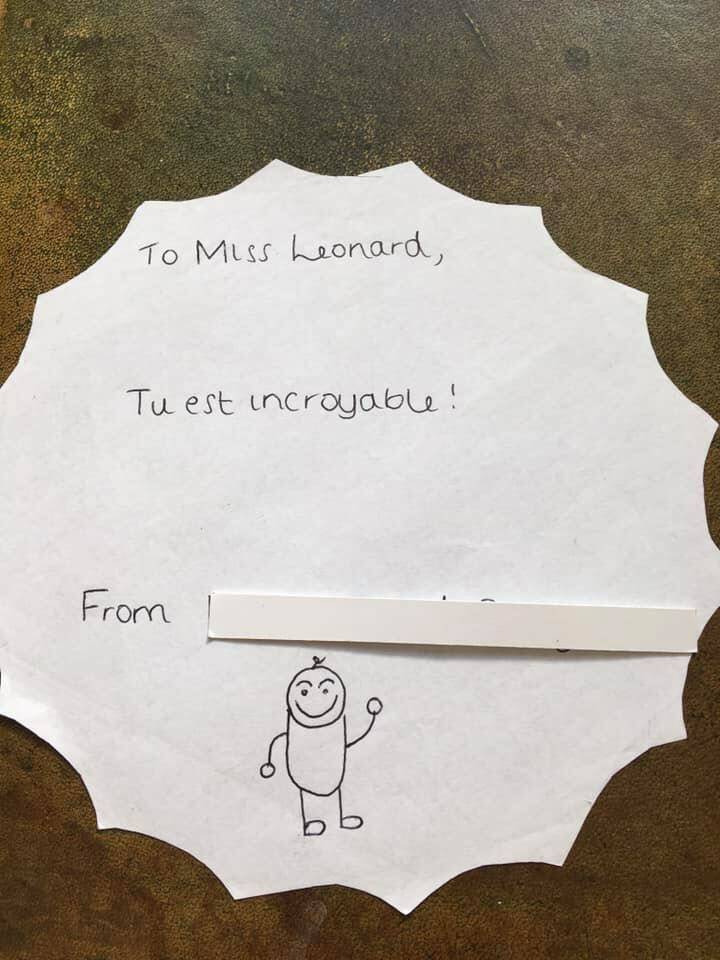 To Miss Leonard,
Tu est incroyable!
From